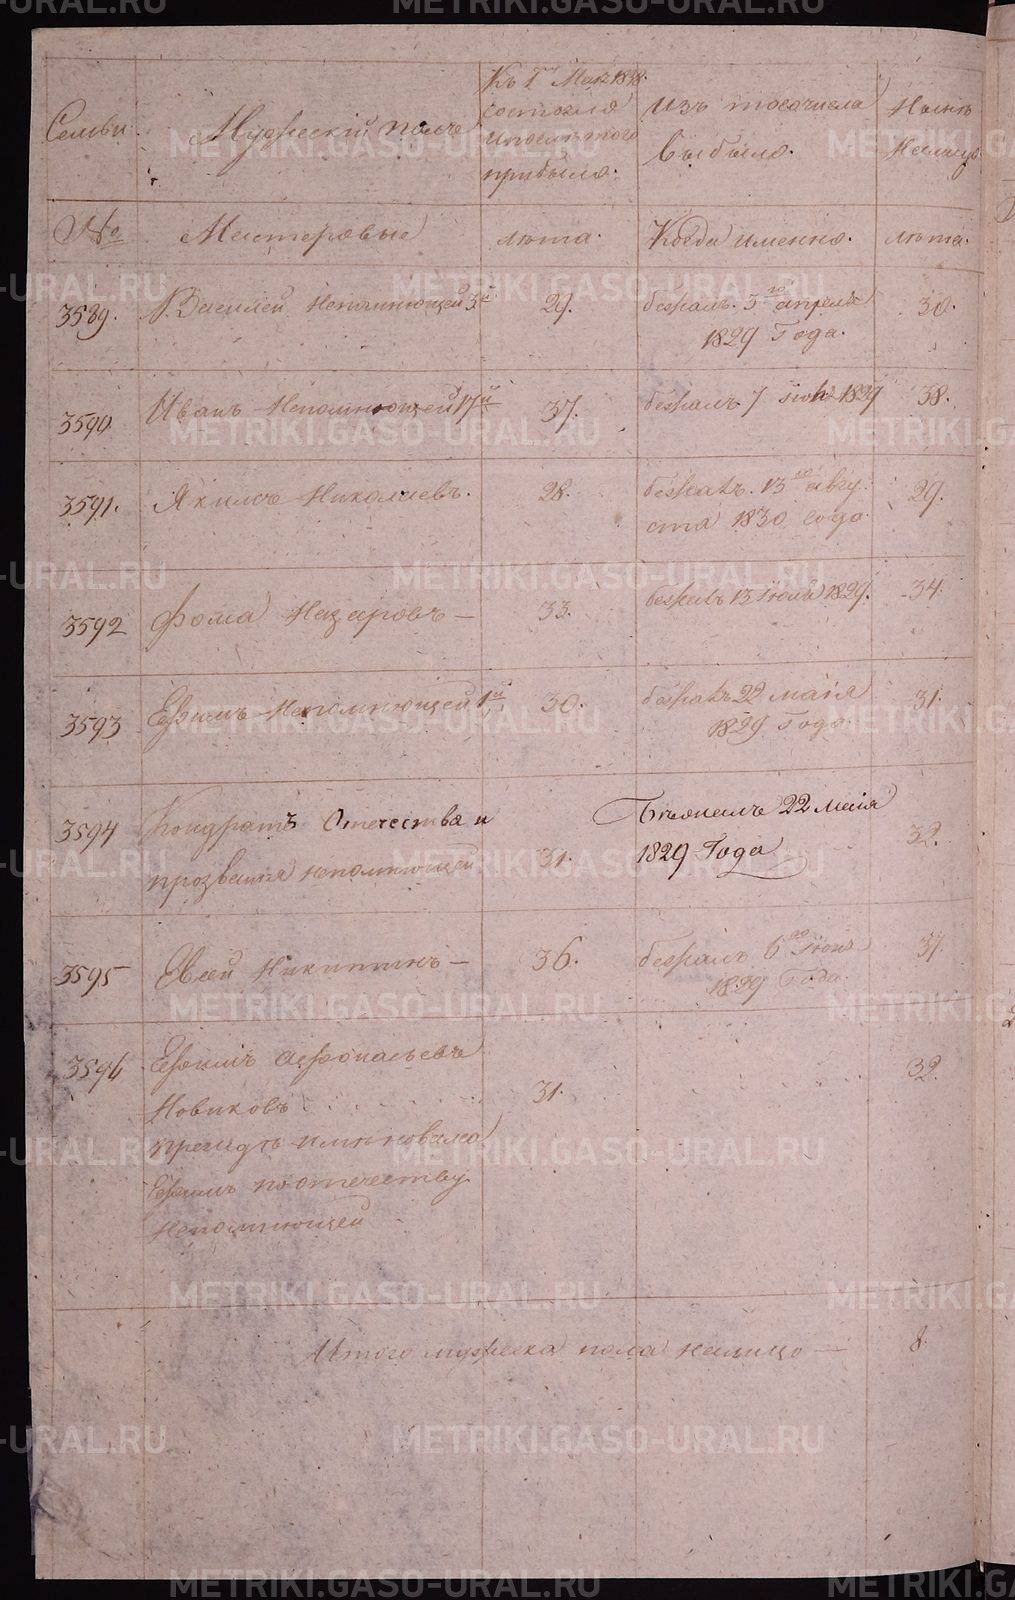 Семьи
Мужескiй полъ
Къ 1
состояло
и после того
прибыло.
Изъ того числа
выбыло.
Ныне
Налицо
№
Мастеровые
лета.
Когда именно.
лета.
3589.
Василей Непомнющей 3й
29.
бежалъ 3го апреля
1829 Года.
30.
3590
Иванъ Непомнющей 17й
37.
бежалъ 7
38.
3591.
Якимъ Николаевъ.
28.
бежалъ 13го авгу
ста 1830 года
29.
3592
Фома Назаровъ —
33.
бежалъ 13 Июля 1829.
34
3593
Ефимъ Непомнющей 1й
30.
бежалъ 22 маiя
1829 Года.
31.
3594
Кондратъ Отечества и
прозвания непомнющей
31.
Бежалъ 22 маiя
1829 Года
32.
3595
Евсей Никитинъ —
36.
бежалъ 6го Июня
1829 Года.
37.
3596
Ефимъ Афонасьевъ
Новиковъ
прежде именовался
Ефимъ по отечеству
Непомнющей
31.
32.
Итого мужеска пола налицо —
8.
METRIKI.GASO-URAL.RU